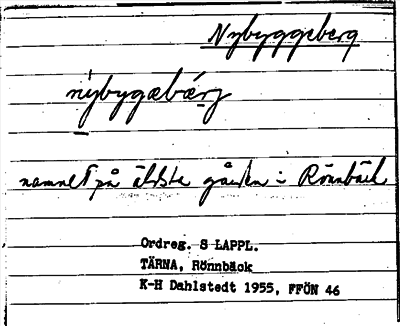 Nybyggeberg
nýbygæbærj
namnet på äldsta gården i Rönnbäck
Ordreg. S LAPPL.
TÄRNA, Rönnbäck
K-H Dahlstedt 1955, FFÖN 46